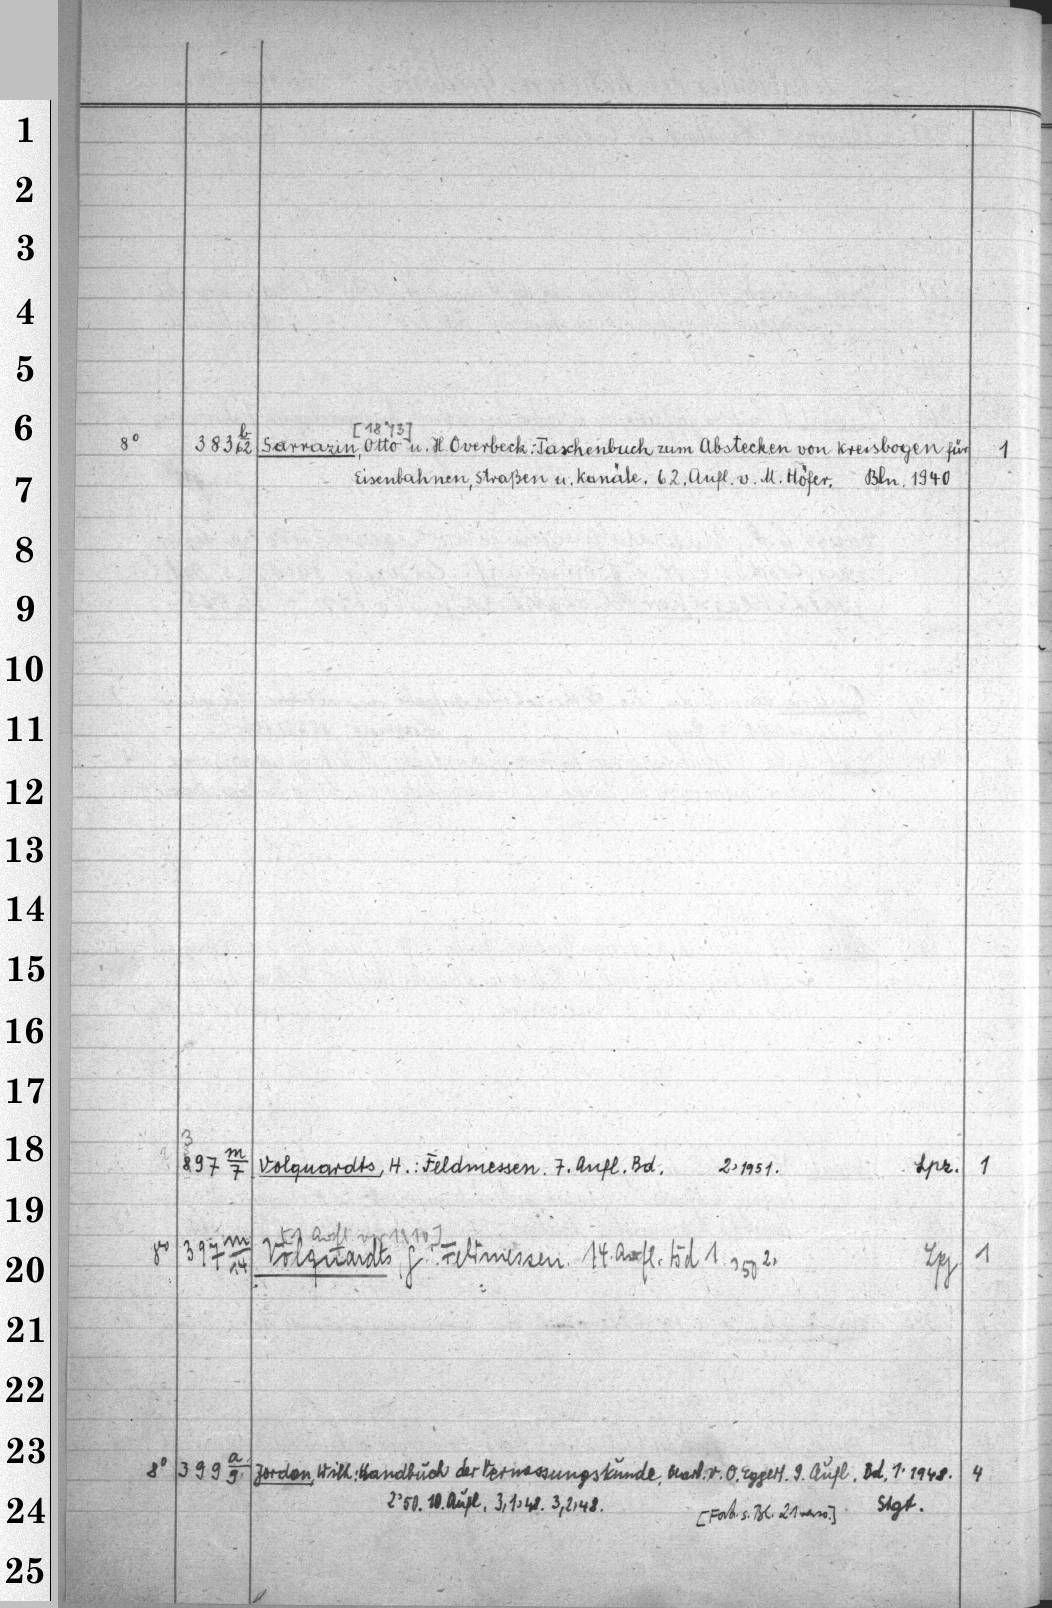 1
2
3
4
5
6
[1873]
8° 383 b/62 Sarrazin, Otto u. H. Overbeck: Taschenbuch zum Abstecken von Kreisbogen für 1
7
Eisenbahnen, Straßen u. Kanäle. 62. Aufl. v. M. Höfer. Bln. 1940
8
9
10
11
12
13
14
15
16
17
3
18
897 m/7 Volquardts, H.: Feldmessen. 7. Aufl. Bd. 2, 1951. Lpz. 1
19
8° 397 m/14 Volquardts, G.: Feldmessen. 14. Aufl. Bd 1, 50 2, Lpz 1
20
21
22
23
8° 399 a/9 Jordan, Wilh.: Handbuch der Vermessungskunde, bearb. v. O. Eggert. 9. Aufl. Bd. 1, 1948. 4
24
2, 50. 10. Aufl. 3,1, 48. 3,2, 48. Stgt.
[Forts. s. Bl. 21 verso.]
25